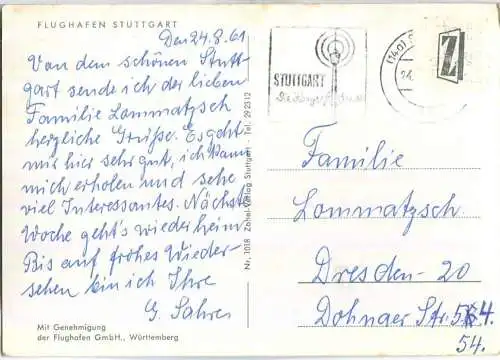 FLUGHAFEN STUTTGART
Den 24.8.61
Von dem schönen Stutt-
gart sende ich der lieben
Familie Lommatzsch
herzliche Grüße. Es geht
mir hier sehr gut, ich kann
mich erholen und sehe
viel Interessantes. Nächste
Woche geht's wieder heim
Bis auf frohes Wieder-
sehen bin ich Ihre
G. Sahre
Mit Genehmigung
der Flughafen GmbH., Württemberg
Nr. 1018 Zobel-Verlag Stuttgart - Tel. 292312
STUTTGART
(14a)
24.
Z
Familie
Lommatzsch
Dresden-20
Dohnaer Str. 54.
54.